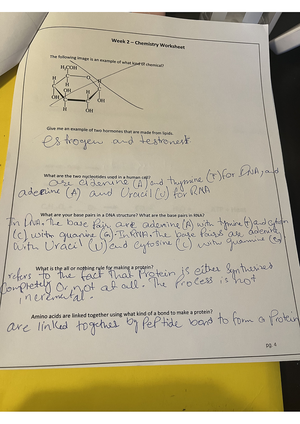 Week 2 – Chemistry Worksheet
The following image is an example of what kind of chemical?
H₂COH
C O
H H H
C C
OH OH H OH
C C
H OH
Give me an example of two hormones that are made from lipids.
estrogen and testronest
What are the two nucleotides used in a human cell?
are adenine (A) and thymine (T) for DNA, and
adenine (A) and Uracil (U) for RNA
What are your base pairs in a DNA structure? What are the base pairs in RNA?
In DNA, The base Pair are adenine (A) with tymine (T) and cytosin
(C) with guanine (G). In RNA, The base Pairs are adenine
with Uracil (U) and cytosine (C) with guanine (G)
What is the all or nothing rule for making a protein?
refers to the fact that Protein is either synthesized
completely or not at all. The Process is not
incremental.
Amino acids are linked together using what kind of a bond to make a protein?
are linked together by PePtide bond to form a Protein
pg. 4